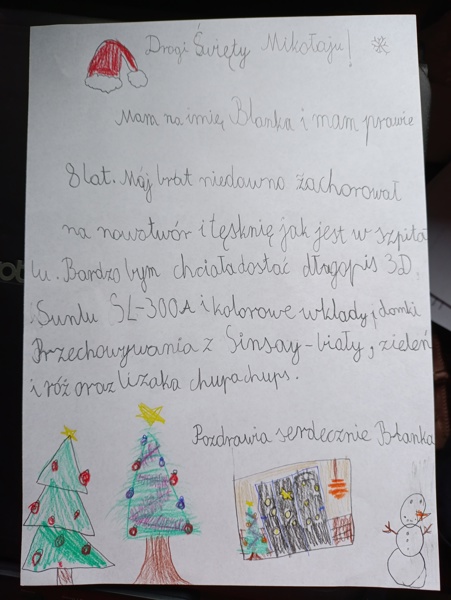 Drogi Święty Mikołaju!
Mam na imię Blanka i mam prawie
8 lat. Mój brat niedawno zachorował
na nowotwór i tęsknię jak jest w szpita
lu. Bardzo bym chciała dostać długopis 3D
Sunlu SL-300A i kolorowe wkłady, domki
Przechowywania z Sinsay-biały, zieleń
i róż oraz lizaka chupachups.
Pozdrawia serdecznie Blanka